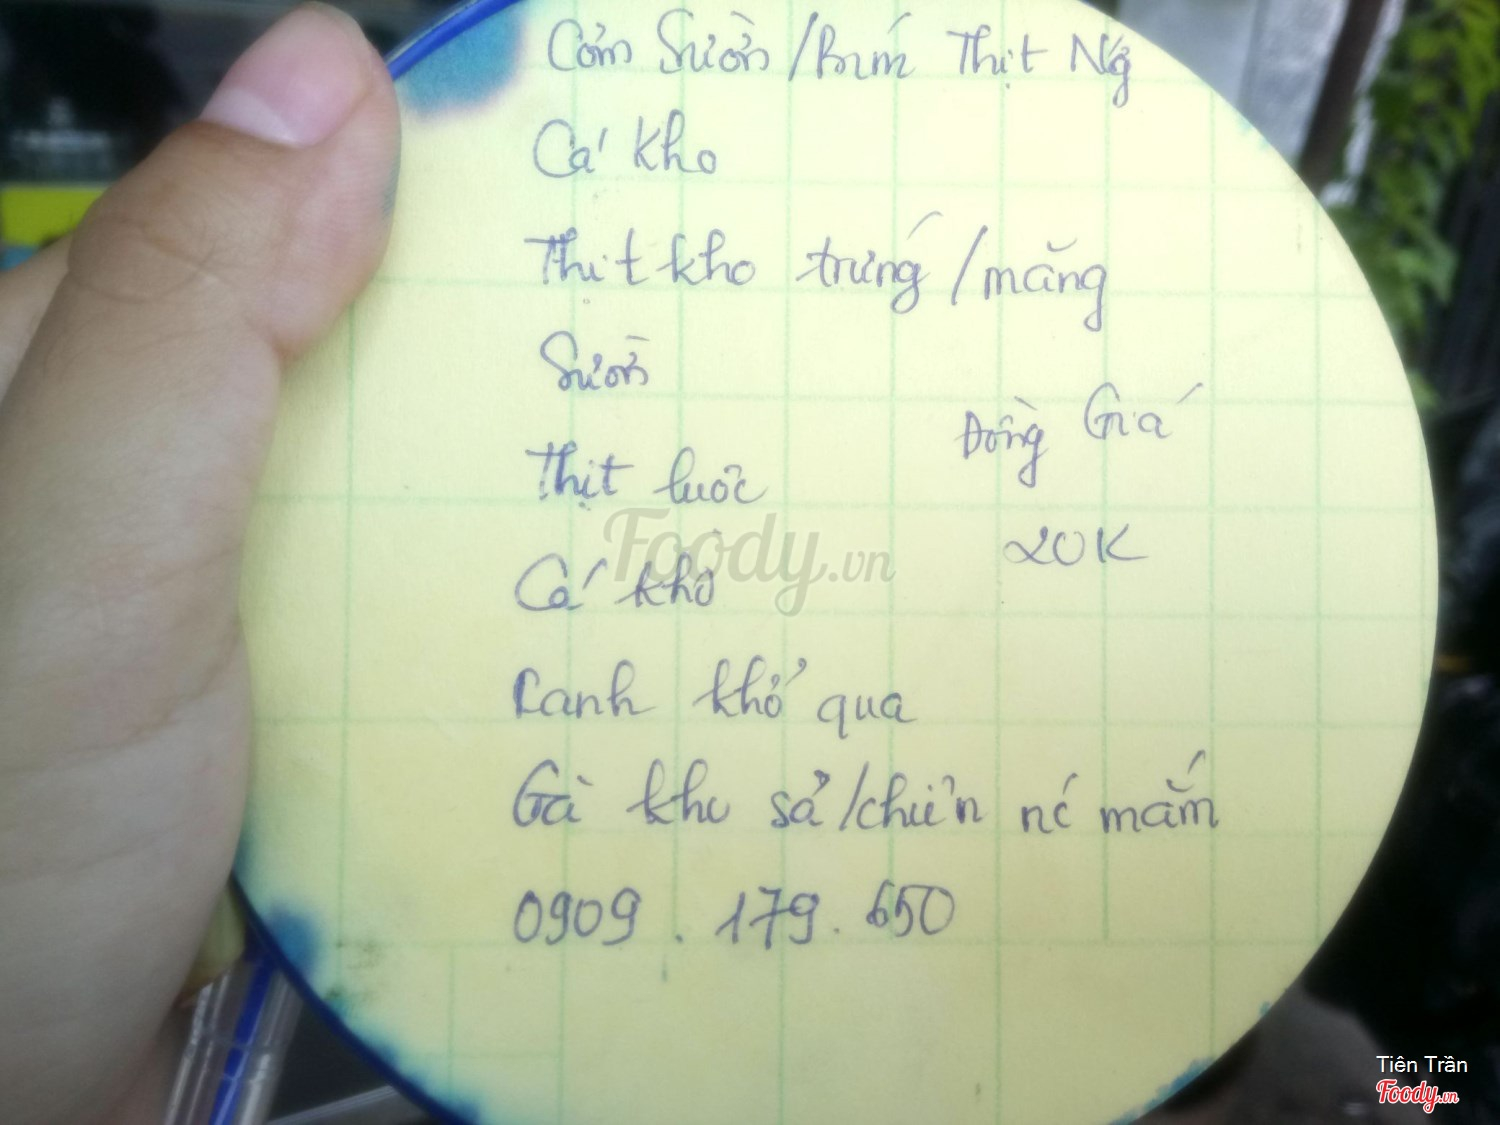 Cơm Sườn / Bún Thịt Ng
Cá kho
Thịt kho trứng / măng
Sườn
Đồng Giá
Thịt luộc
20K
Cá khô
Canh khổ qua
Gà kho sả / chiên nc mắm
0909 . 179 . 650
Foody.vn
Tiên Trần
Foody.vn